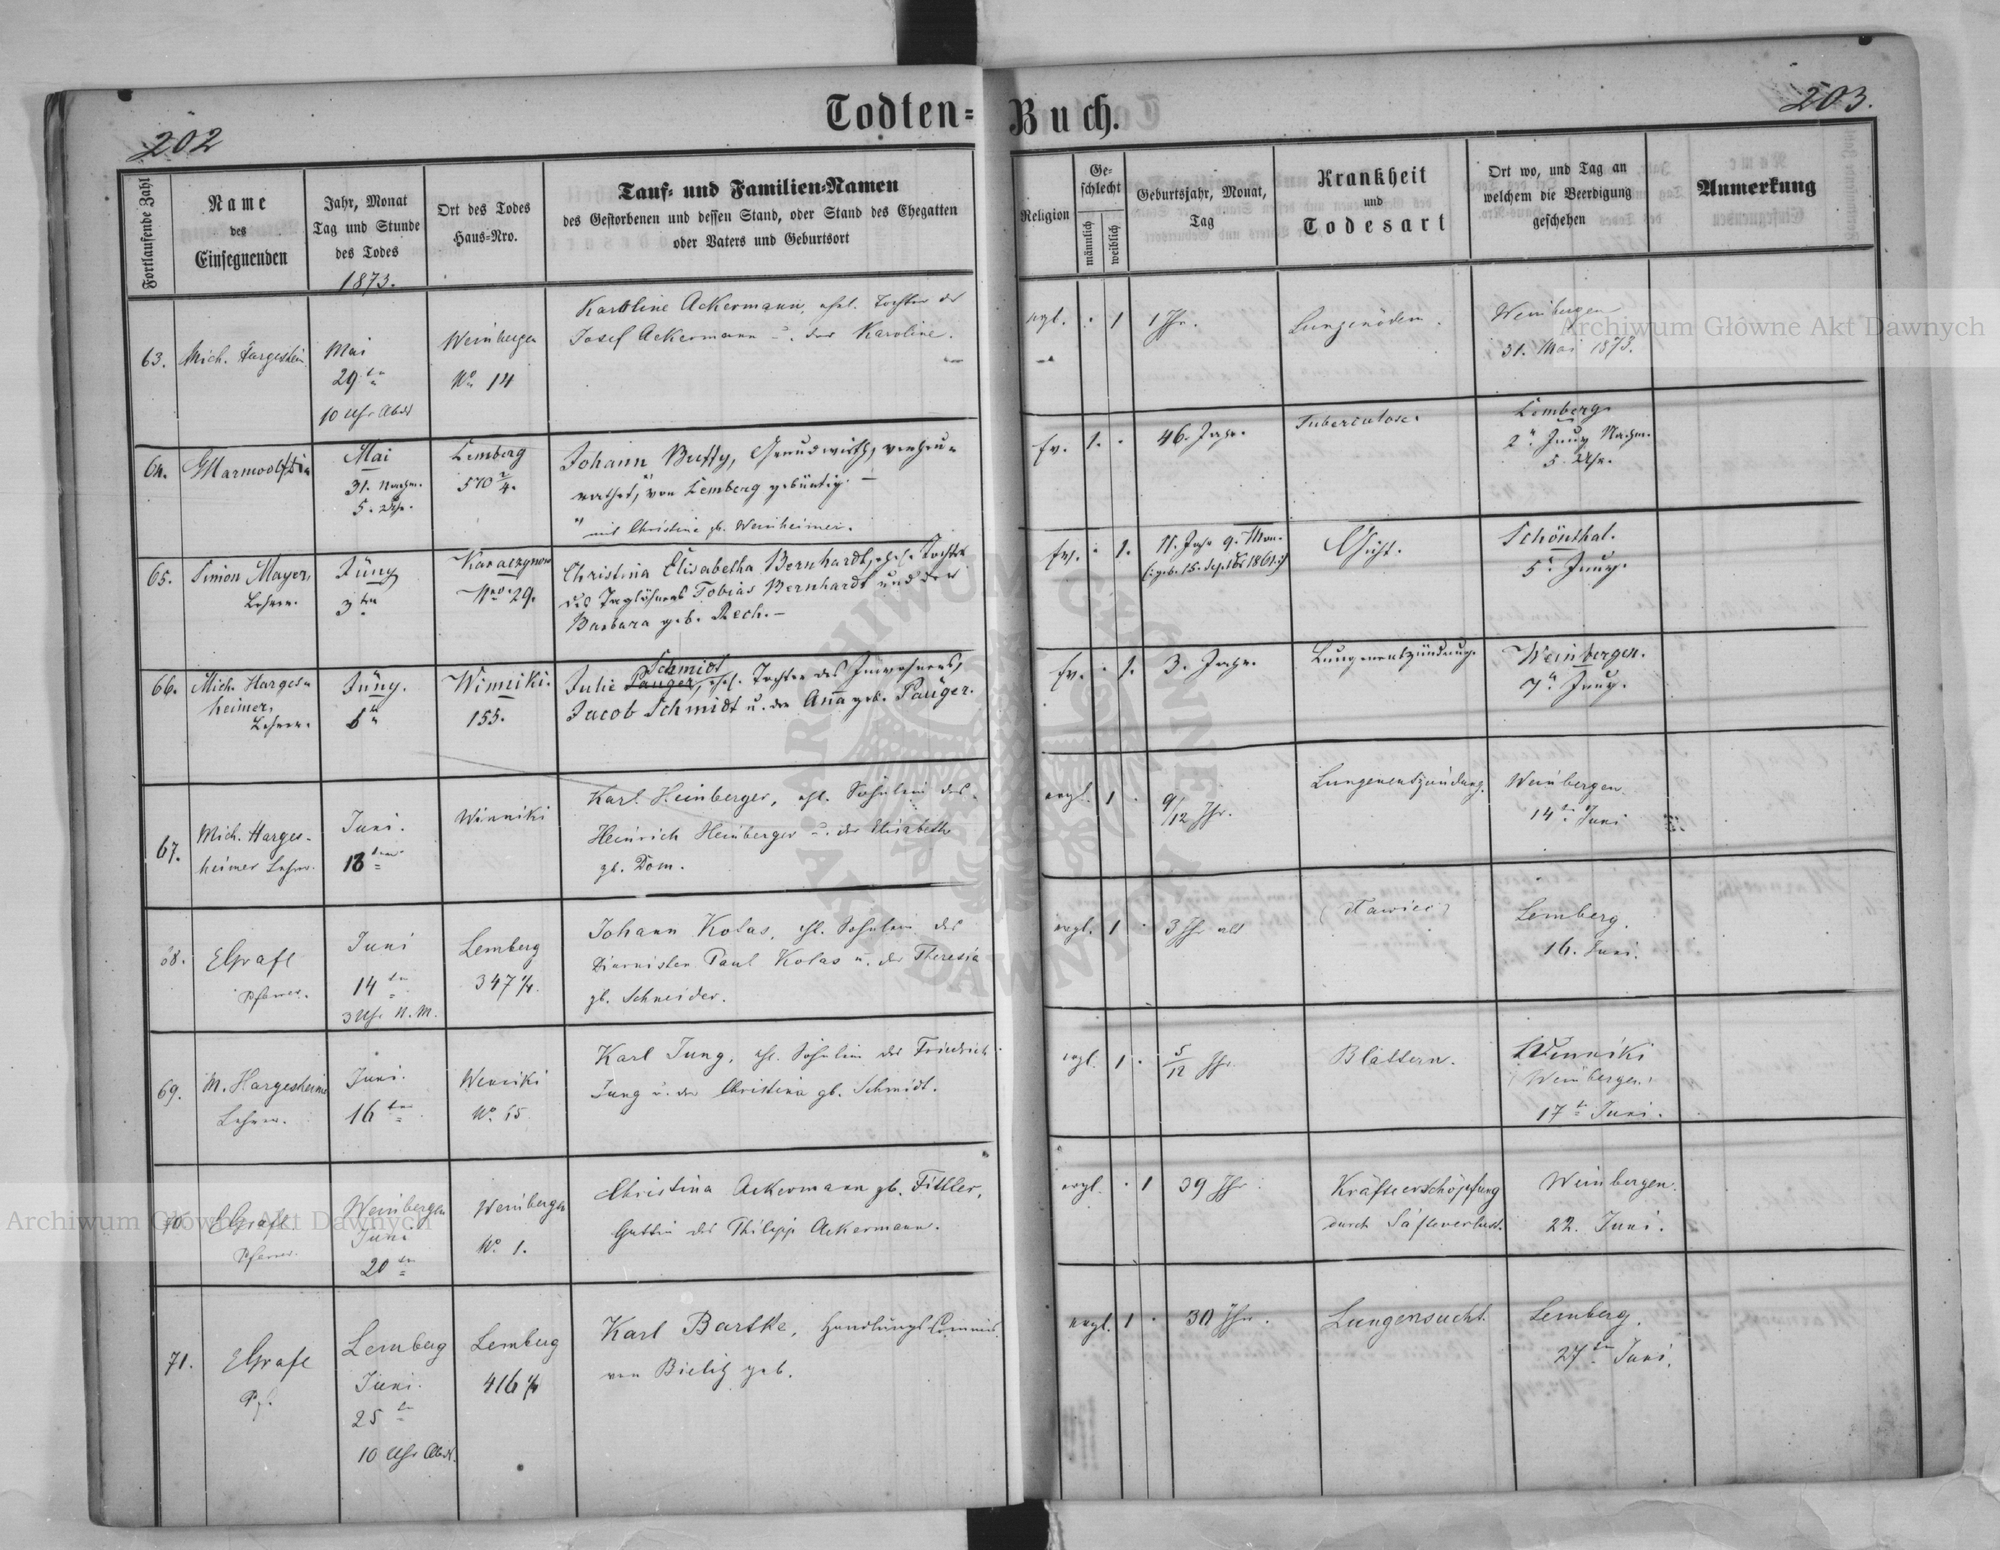 202
Todten=
Buch.
203.
Fortlaufende Zahl
Name
des
Einsegnenden
Jahr, Monat
Tag und Stunde
des Todes
1873.
Ort des Todes
Haus=Nro.
Tauf= und Familien=Namen
des Gestorbenen und dessen Stand, oder Stand des Ehegatten
oder Vaters und Geburtsort
Religion
Ge-
schlecht
männlich
weiblich
Geburtsjahr, Monat,
Tag
Krankheit
und
Todesart
Ort wo, und Tag an
welchem die Beerdigung
geschehen
Anmerkung
63.
Mich.
Mai
29 ten
10 Uhr Abds
Weinbergen
No 14
Karoline Ackermann, ehel. Tochter des
Josef Ackermann u. der Karoline.
evgl.
1
1 Jhr.
Lungenödem.
Weinbergen
31. Mai 1873.
64.
Mai
31. Nachm.
5. Uhr.
Lemberg
570 2/4.
Johann Buffy, Grundwirth, verheu-
rathet, von Lemberg gebürtig. —
" mit Christine gb. Weinheimer.
ev.
1.
46. Jahr.
Tuberculose.
Lemberg.
2 Juny Nachm.
5. Uhr.
65.
Simon Mayer,
Lehrer.
Juny
3 ten
Nro. 29.
Christina Elisabetha Bernhardt, ehel. Tochter
des Taglöhners Tobias Bernhardt und der
Barbara geb. Rech. —
ev.
1.
11. Jahr 9. Mon.
(: geb. 15. Septbr 1861 :)
Gicht.
Schönthal.
5. Juny.
66.
Mich. Harges-
heimer,
Lehrer.
Juny.
6
Winniki.
155.
Schmidt
Julie Pauger, ehel. Tochter des Inwohners,
Jacob Schmidt u. der Anna geb. Pauger.
ev.
1.
3. Jahr.
Lungenentzündung.
Weinbergen.
7 Juny.
67.
Mich. Harges-
heimer Lehrer.
Juni.
13 ten
Winniki
Karl Heinberger, ehl. Söhnlein des
Heinrich Heinberger u. der Elisabeth
gb. Dom.
evgl.
1
9/12 Jhr.
Lungenentzündung.
Weinbergen
14 ten Juni
68.
EGrafl
Pfarrer.
Juni
14 ten
3 Uhr N. M.
Lemberg
347 4/4.
Johann Kolas, ehl. Söhnlein des
Diurnisten Paul Kolas u. der Theresia
gb. Schneider.
evgl.
1
3 Jhr alt
Lemberg.
16. Juni.
69.
M. Hargesheimer
Lehrer.
Juni.
16 ten
Winniki
No 65
Karl Jung, ehl. Söhnlein des Friedrich
Jung u. der Christina gb. Schmidt.
evgl.
1
5/12 Jhr
Blattern.
Winniki
(Weinbergen)
17 ten Juni.
70.
EGrafl
Pfarrer.
Weinbergen
Juni
20 ten
Weinbergen
No 1.
Christina Ackermann gb. Fittler,
Gattin des Philipp Ackermann.
evgl.
1
39 Jhr.
Kräfteerschöpfung
durch Säfteverlust.
Weinbergen.
22. Juni.
71.
EGrafl
Pf.
Lemberg
Juni.
25 ten
10 Uhr Abds.
Lemberg
416 4/4
Karl Bartke, Handlungs Commis.
von Bielitz geb.
evgl.
1
30 Jhr.
Lungensucht
Lemberg.
27 ten Juni.
Archiwum Główne Akt Dawnych
Archiwum Główne Akt Dawnych
ARCHIWUM GŁÓWNE AKT DAWNYCH